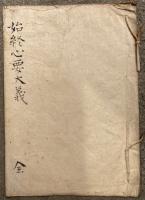 始終心要大義
全